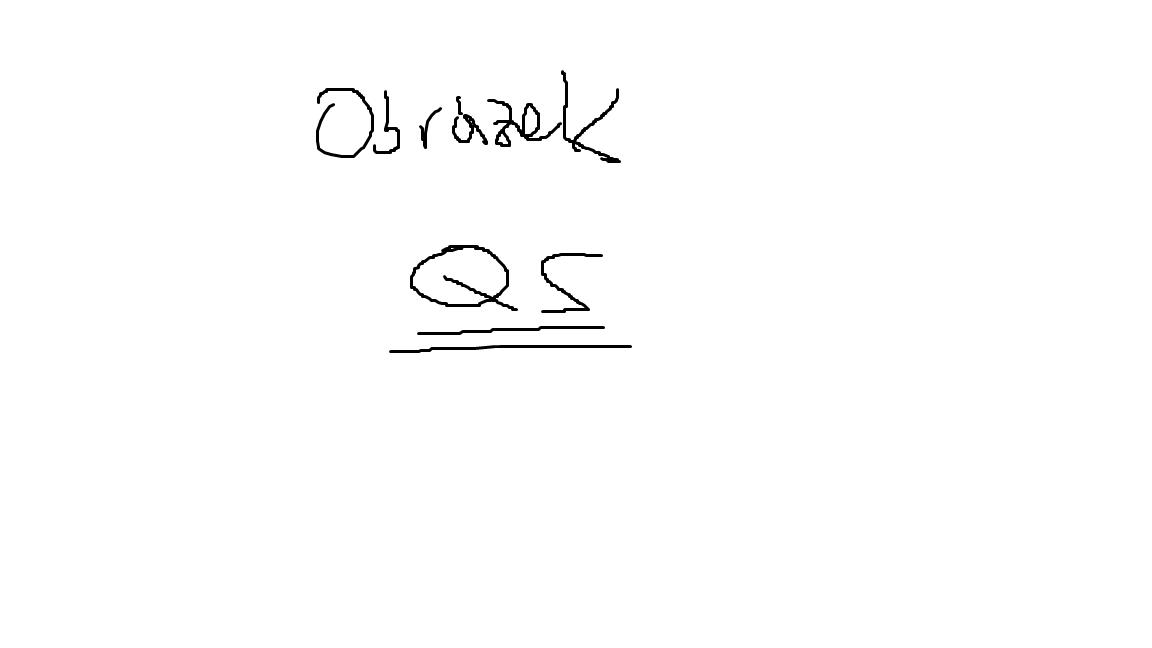 Obrazek
QS